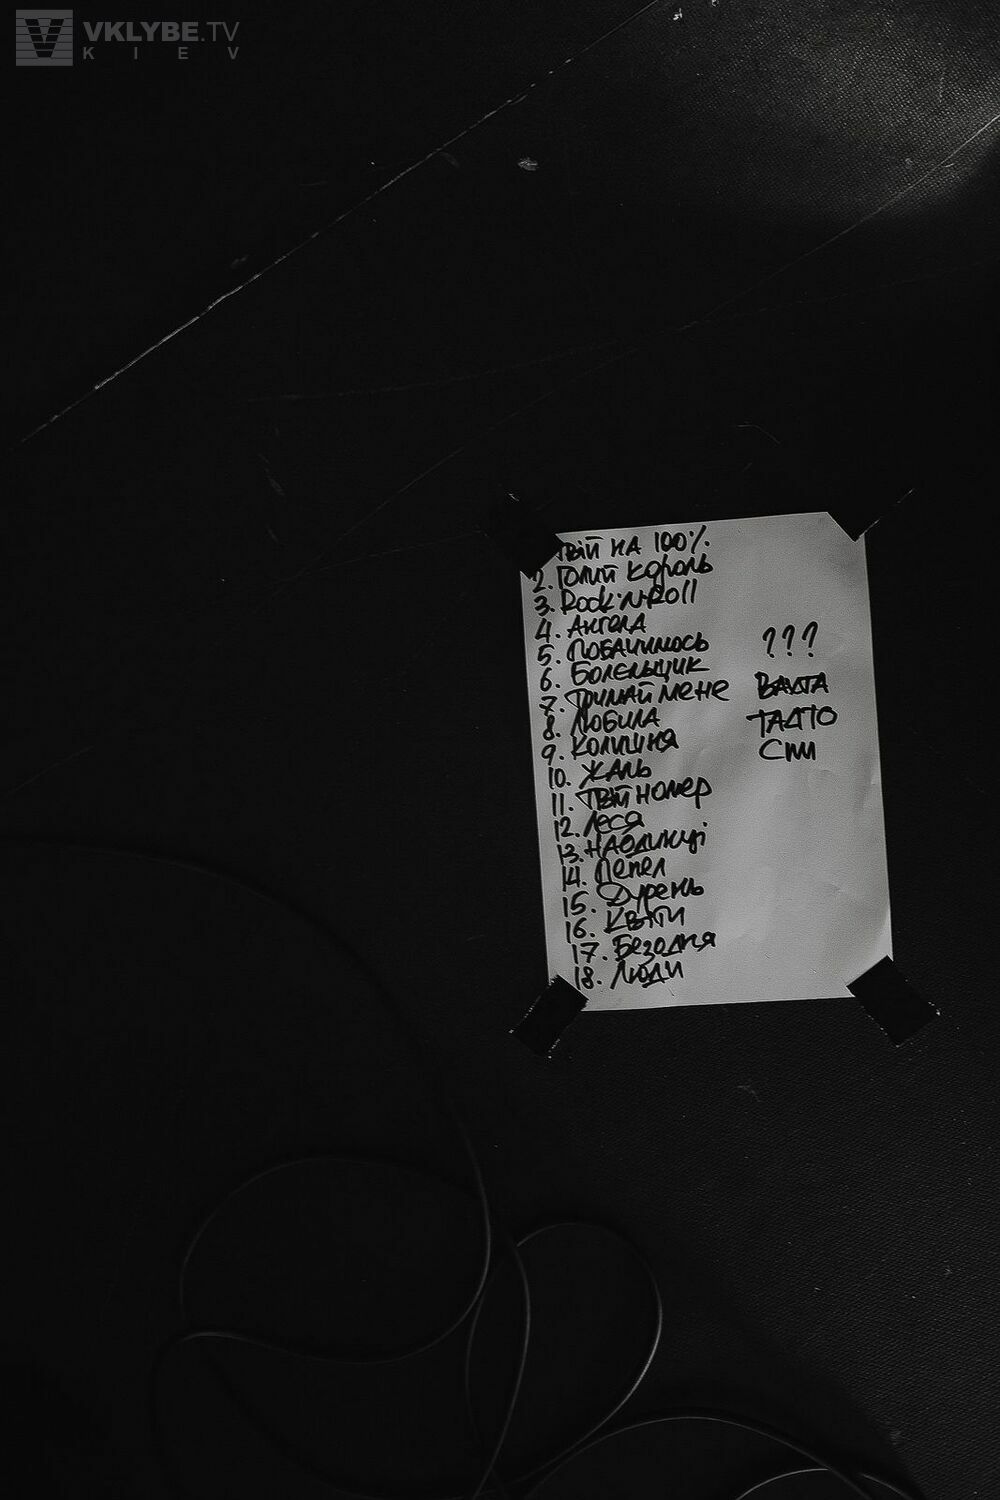 VKLYBE.TV
KIEV
Твій на 100%
2. Голий король
3. Rock'N'Roll
4. Ангела
5. Побачимось
6. Болельщик
7. Тримай мене
8. Любила
9. Колишня
10. Жаль
11. Твій номер
12. Леся
13. Наодинці
14. Пепел
15. Дурень
16. Квіти
17. Безодня
18. Люди
???
Вахта
Тату